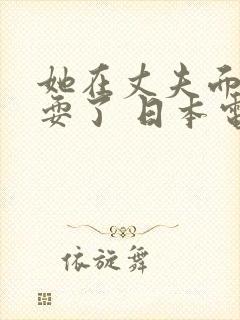 她在丈夫而
耍了 日本電
依旋舞